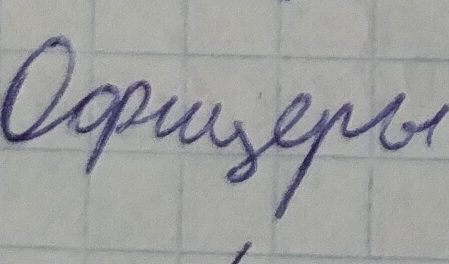 Офицеры